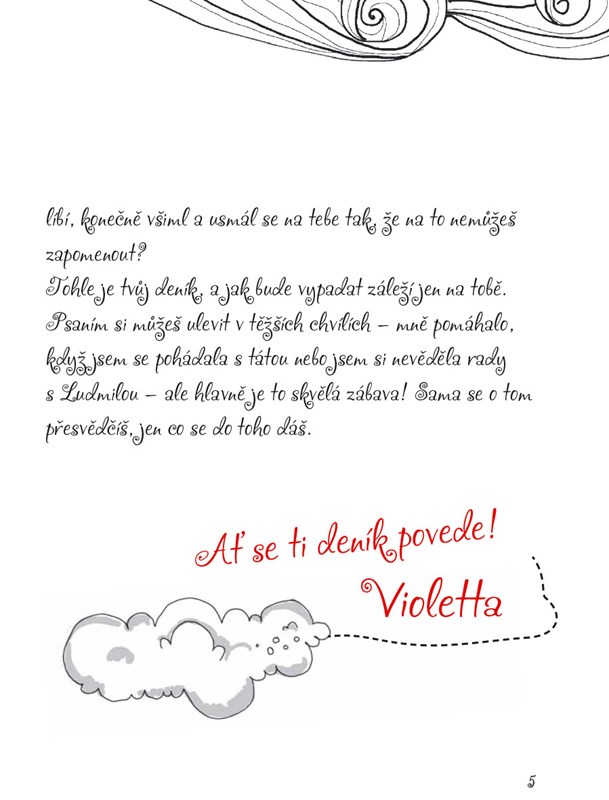 líbí, konečně všiml a usmál se na tebe tak, že na to nemůžeš
zapomenout?
Tohle je tvůj deník, a jak bude vypadat záleží jen na tobě.
Psaním si můžeš ulevit v těžších chvílích – mně pomáhalo,
když jsem se pohádala s tátou nebo jsem si nevěděla rady
s Ludmilou – ale hlavně je to skvělá zábava! Sama se o tom
přesvědčíš, jen co se do toho dáš.
Ať se ti deník povede!
Violetta
5